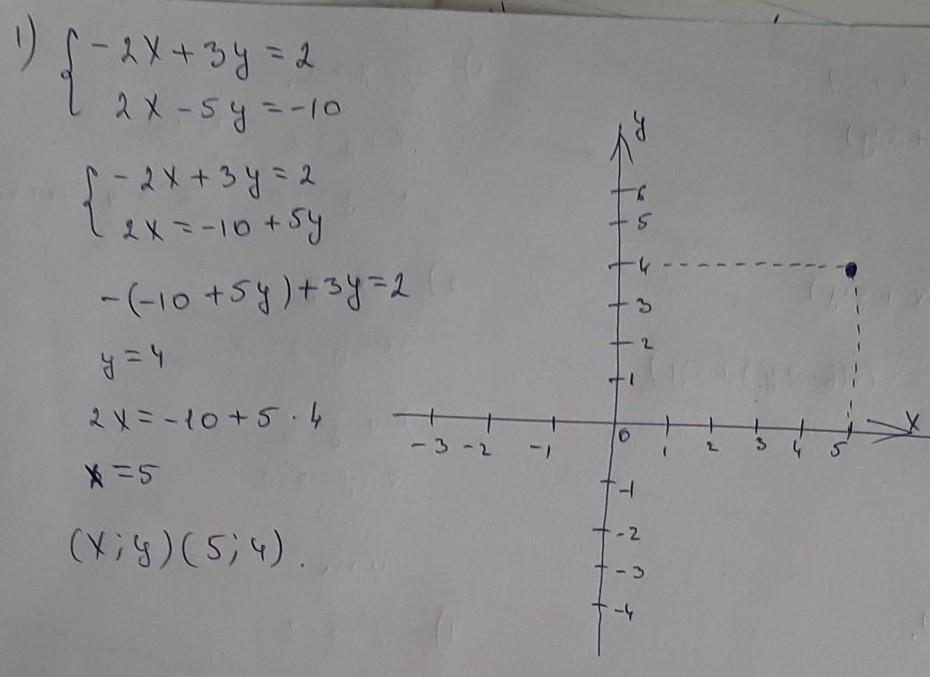 1) { -2x+3y=2
2x-5y=-10
{ -2x+3y=2
2x=-10+5y
-(-10+5y)+3y=2
y=4
2x=-10+5·4
x=5
(x;y)(5;4).
y
6
5
4
3
2
1
-3 -2 -1 0 1 2 3 4 5 x
-1
-2
-3
-4